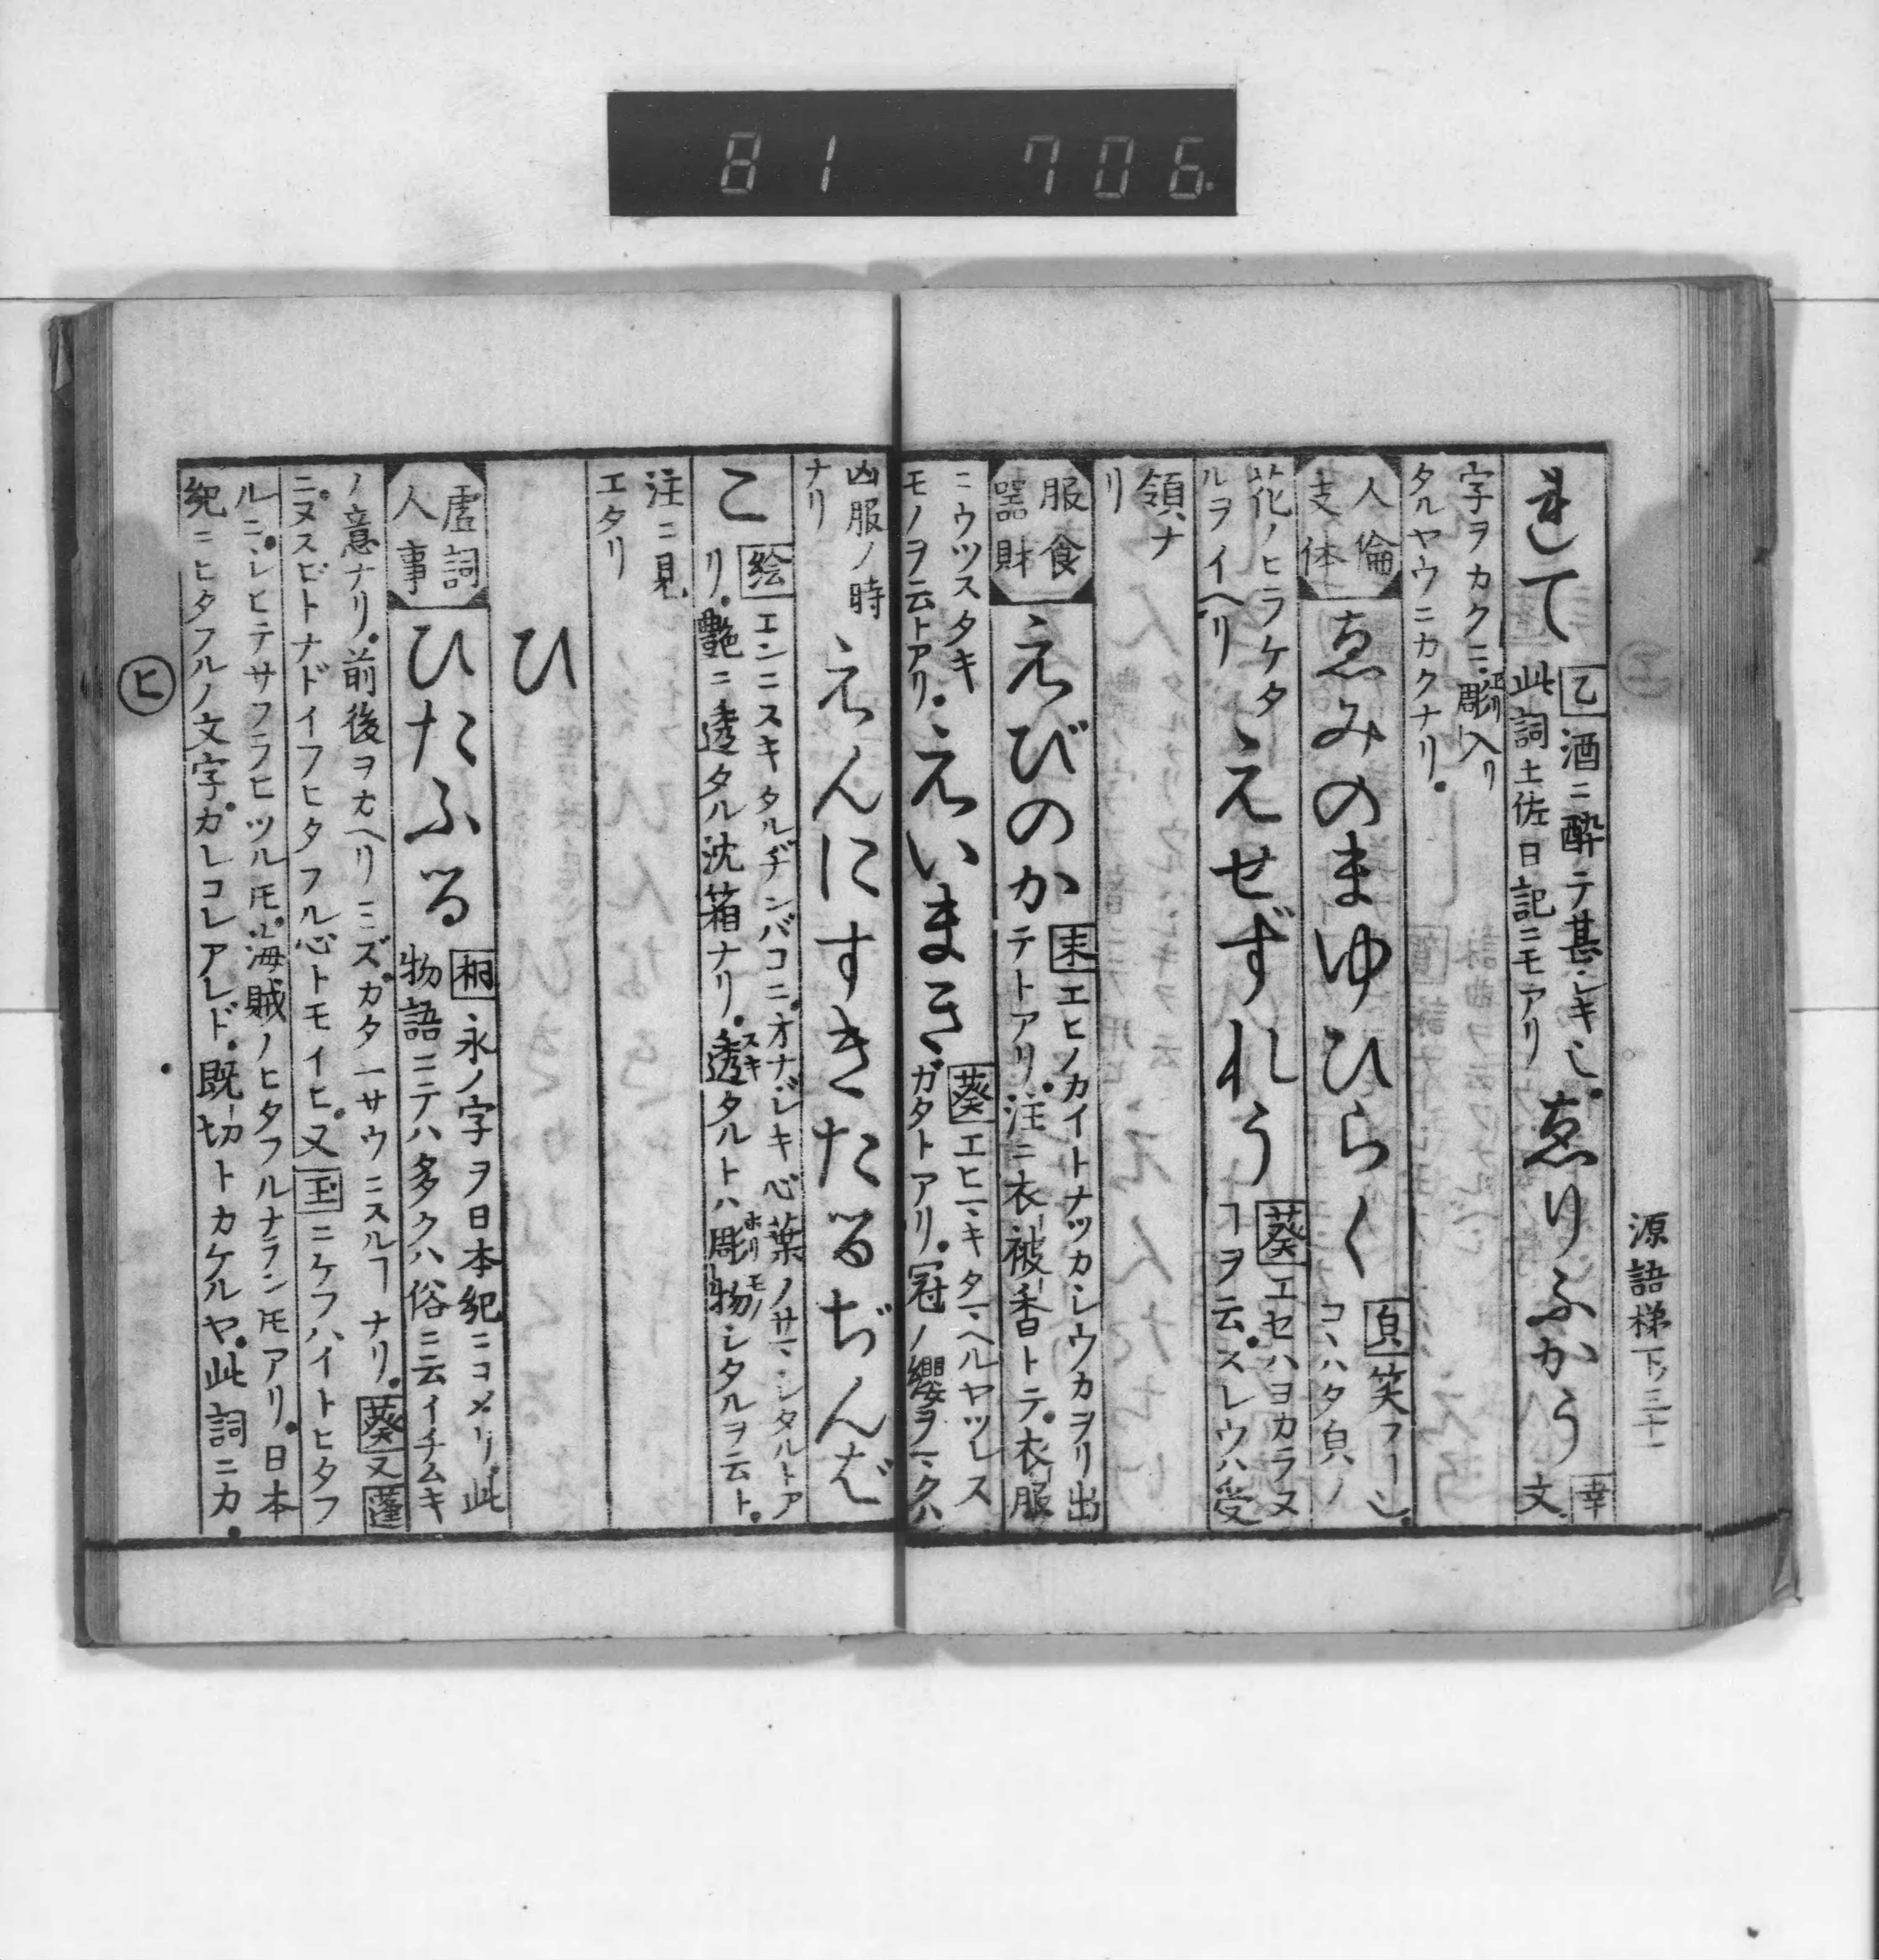 81 706
源語梯下ノ三十一
れて 乙 酒ニ酔テ甚シキ也。
此詞土佐日記ニモアリ
ゑりふかう 幸 文
字ヲカクニ彫入リ
タルヤウニカクナリ。
人倫
支体
ゑみのまゆひらく 㒵 笑フヿ也。
コヽハタ㒵ノ
花ノヒラケタ
ルヲイヘリ
えせずれう 葵 エセハヨカラヌ
ヿヲ云。スレウハ受
領ナ
リ
服食
器財
えびのか 末 エヒノカイトナツカシウカヲリ出
テトアリ。注ニ衣被香トテ。衣服
ニウツスタキ
モノヲ云トアリ。
えいまき 葵 エヒマキタマヘルヤツレス
ガタトアリ。冠ノ纓ヲマクハ
凶服ノ時
ナリ
えんにすきたるぢんば
こ 絵 エンニスキタルヂンバコニ。オナジキ心葉ノサマシタルトア
リ。艶ニ透タル沈箱ナリ。透スキタルトハ彫ホリ物モノシタルヲ云ト。
注ニ見
エタリ
ひ
虚詞
人事
ひたふる 桐 永ノ字ヲ日本紀ニコメリ。此
物語ニテハ多クハ俗ニ云イチムキ
ノ意ナリ。前後ヲカヘリミズ。カターサウニスルヿナリ。葵又蓬
ニ。ヌスビトナドイフヒタフル心トモイヒ。又玉ニケフハイトヒタフ
ルニ。シヒテサフラヒツルㇳモ。海賊ノヒタフルナランㇳモアリ。日本
紀ニヒタフルノ文字。カレコレアレド。既切トカケルヤ。此詞ニカ。
ヒ